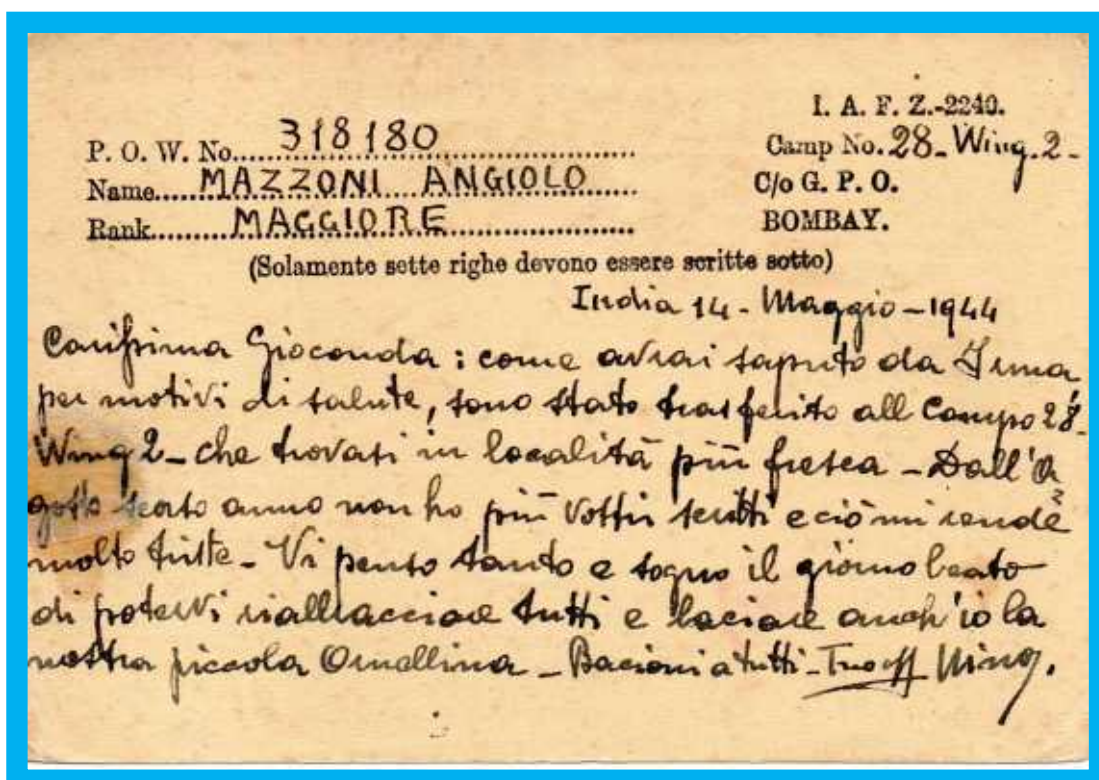 I. A. F. Z.-2240.
P. O. W. No. 318180
Camp No. 28 - Wing. 2 -
Name MAZZONI ANGIOLO
C/o G. P. O.
Rank MAGGIORE
BOMBAY.
(Solamente sette righe devono essere scritte sotto)
India 14 - Maggio - 1944
Carissima Gioconda : come avrai saputo da Irma
per motivi di salute, sono stato trasferito all Campo 28 -
Wing 2 - che trovasi in località più fresca - Dall'A
gosto scorso anno non ho più vostri scritti e ciò mi rende
molto triste - Vi penso tanto e sogno il giorno beato
di potervi riabbracciare tutti e baciare anch'io la
nostra piccola Ornellina - Bacioni a tutti - Tuo aff Nino.